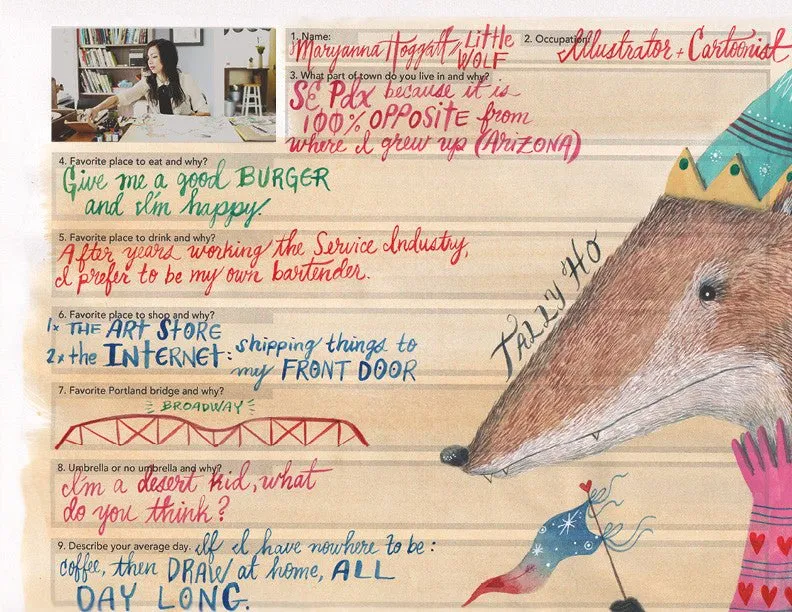 1. Name:
Maryanna Hoggatt / Little Wolf
2. Occupation?
Illustrator + Cartoonist
3. What part of town do you live in and why?
SE Pdx because it is
100% OPPOSITE from
where I grew up (ARIZONA)
4. Favorite place to eat and why?
Give me a good BURGER
and I'm happy.
5. Favorite place to drink and why?
After years working the Service Industry,
I prefer to be my own bartender.
6. Favorite place to shop and why?
1x THE ART STORE
2x the INTERNET: shipping things to
my FRONT DOOR
7. Favorite Portland bridge and why?
BROADWAY
8. Umbrella or no umbrella and why?
I'm a desert kid, what
do you think?
9. Describe your average day. If I have nowhere to be:
coffee, then DRAW at home, ALL
DAY LONG.
TALLY HO